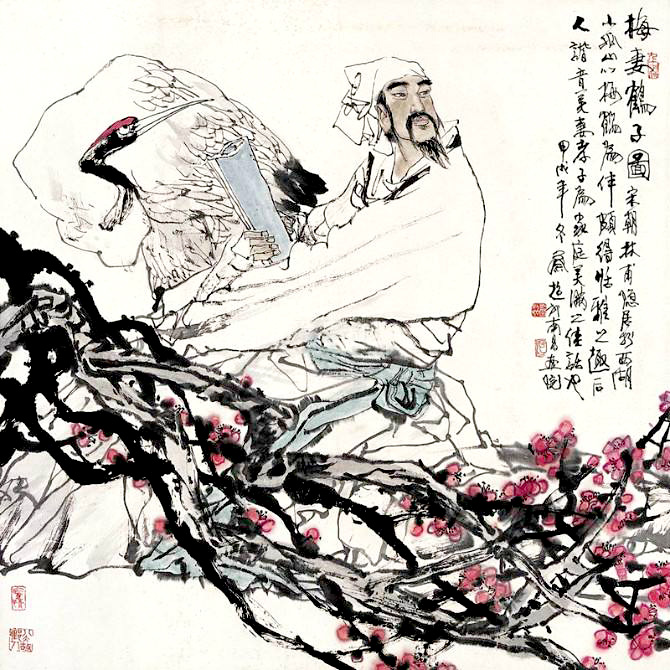 梅妻鶴子圖 宋朝林甫隱居於西湖
小孤山以梅鶴為伴頗得恬雅之趣后
人諧音美妻孝子為家庭美滿之佳話也
甲戌年冬 於南昌画院